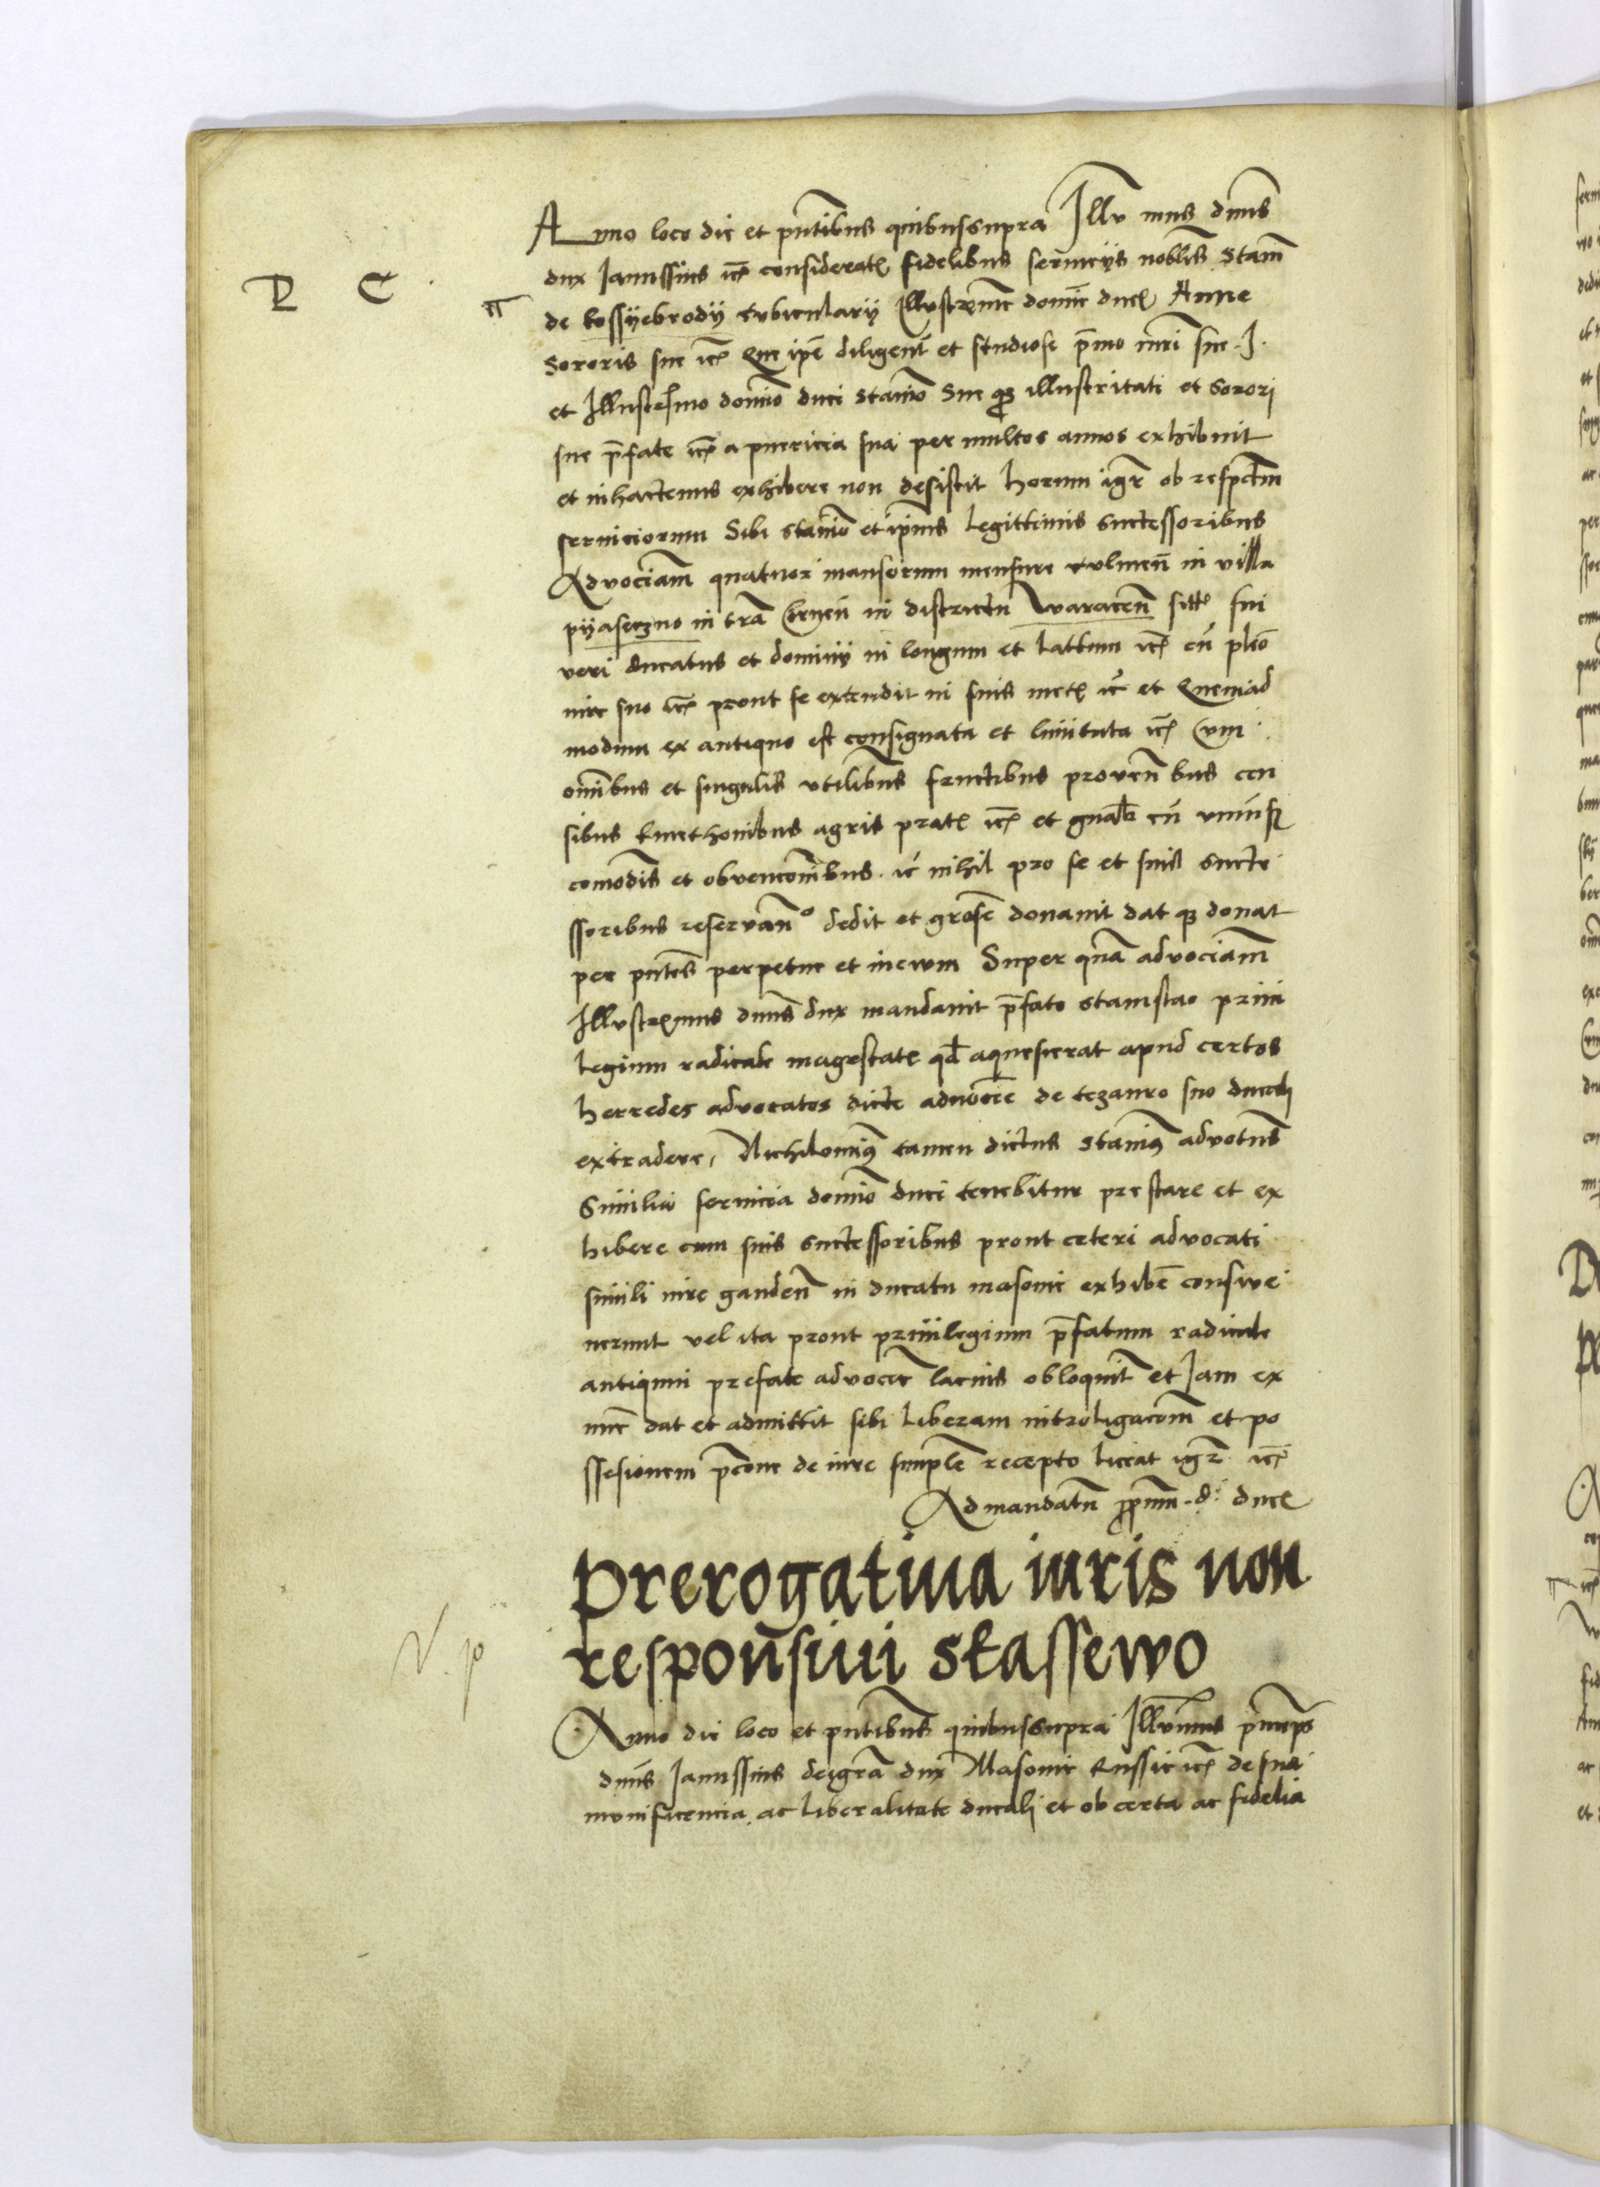 Anno loco die et pntibus quibussupra Illu mus dnus
P C .
dux Janussius etc consideratis fidelibus seruicijs noblis Stani
de kossyebrody cubicularij Illustrime domie ducis Anne
Sororis sue etc Que ipe diligent et studiose pmo mri sue . J .
et Illustrismo domio duci stanio Sue q illustritati et Sorori
sue pfate etc a puericia sua per multos annos exhibuit
et inhactenus exhibere non desistit horum igr ob respctm
seruiciorum Sibi stanio et ipius legittimis successoribus
Advociam quatuor mansorum mensure culmen in villa
pyaseczno in tra Cernen in districtu waracen sitt sui
veri ducatus et dominij in longum et lattum etc cu pleo
iure suo etc prout se extendit in suis metis etc et Quemad
modum ex antiquo est consignata et limitata etc Cum
omibus et singulis vtilibus fructibus proven bus cen
sibus kmethonibus agris pratis etc et gnalr cu vniusis
comodis et obvencoibus . etc nihil pro se et suis succe
ssoribus reservan° dedit et grose donauit dat q donat
per pntes perpetue et ineuum Super qua advociam
Illustrimus dnus dux mandauit pfato stanislao priui
legium radicale magestatis qd aquesierat apud certos
herredes advocatos dicte advocie de tezauro suo ducali
extradere, Nichilomi9 tamen dictus stanis9 advotus
Similia seruicia domio duci tenebitur prestare et ex
hibere cum suis successoribus prout ceteri advocati
simili iure gauden in ducatu masouie exhibe consue
uerunt vel ita prout priuilegium pfatum radicale
antiquum prefate advocie lacius obloquit et Jam ex
nunc dat et admittit sibi liberam intrôligacom et po
ssesionem pcone de iure simple recepto liceat igr etc
Ad mandatu ppium . d . ducis
Prerogatiua iuris non
responsiui stassewo
Anno die loco et pntibus quibussupra Illumus princps
dnus Janussius deigra dux Masouie Russie etc de sua
munificencia ac liberalitate ducali et ob certa ac fidelia